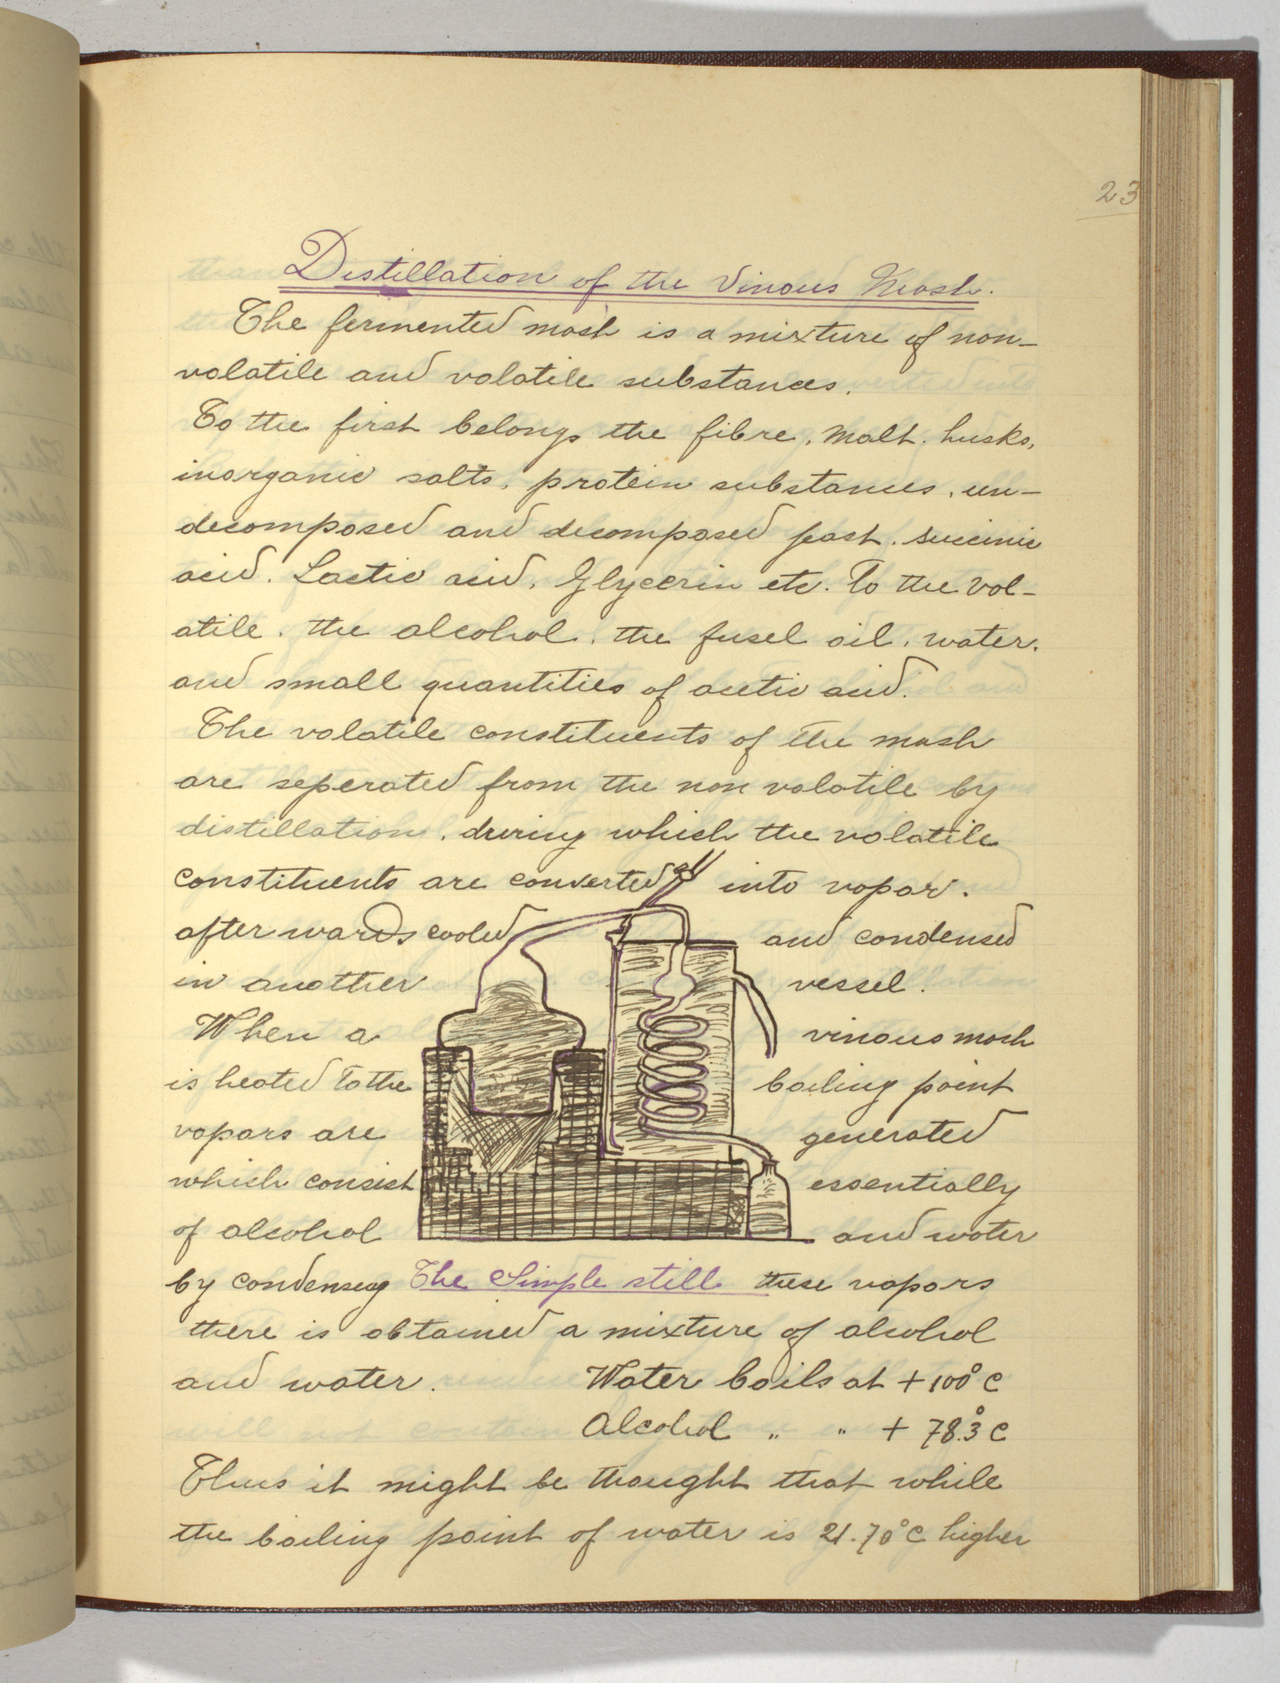 23
Distillation of the Vinous Mash.
The fermented mash is a mixture of non-
volatile and volatile substances.
To the first belongs the fibre, malt. husks,
inorganic salts, protein substances, un-
decomposed and decomposed yeast. succinic
acid. Lactic acid, Glycerin etc. To the vol-
atile. the alcohol. the fusel oil. water.
and small quantities of acetic acid.
The volatile constituents of the mash
are seperated from the non volatile by
distillation. during which the volatile
constituents are converted into vapar.
afterwards cooled and condensed
in another vessel.
When a vinous mash
is heated to the boiling point
vapars are generated
which consist essentially
of alcohol and water
by condensing The Simple still these vapors
there is obtained a mixture of alcohol
and water. Water boils at + 100° C
Alcohol " " + 78.3° C
Thus it might be thought that while
the boiling point of water is 21.70° C higher